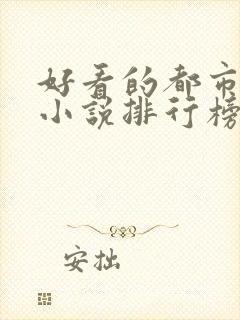 好看的都市
小说排行榜
安拙